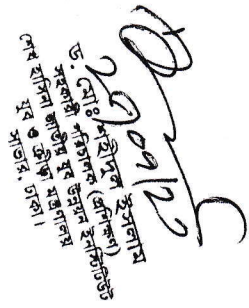 ২৩/০৭/২২
ড. মো: শহীদুল ইসলাম
সহকারী পরিচালক (প্রশিক্ষণ)
শেখ হাসিনা জাতীয় যুব উন্নয়ন ইনস্টিটিউট
যুব ও ক্রীড়া মন্ত্রণালয়
সাভার, ঢাকা।